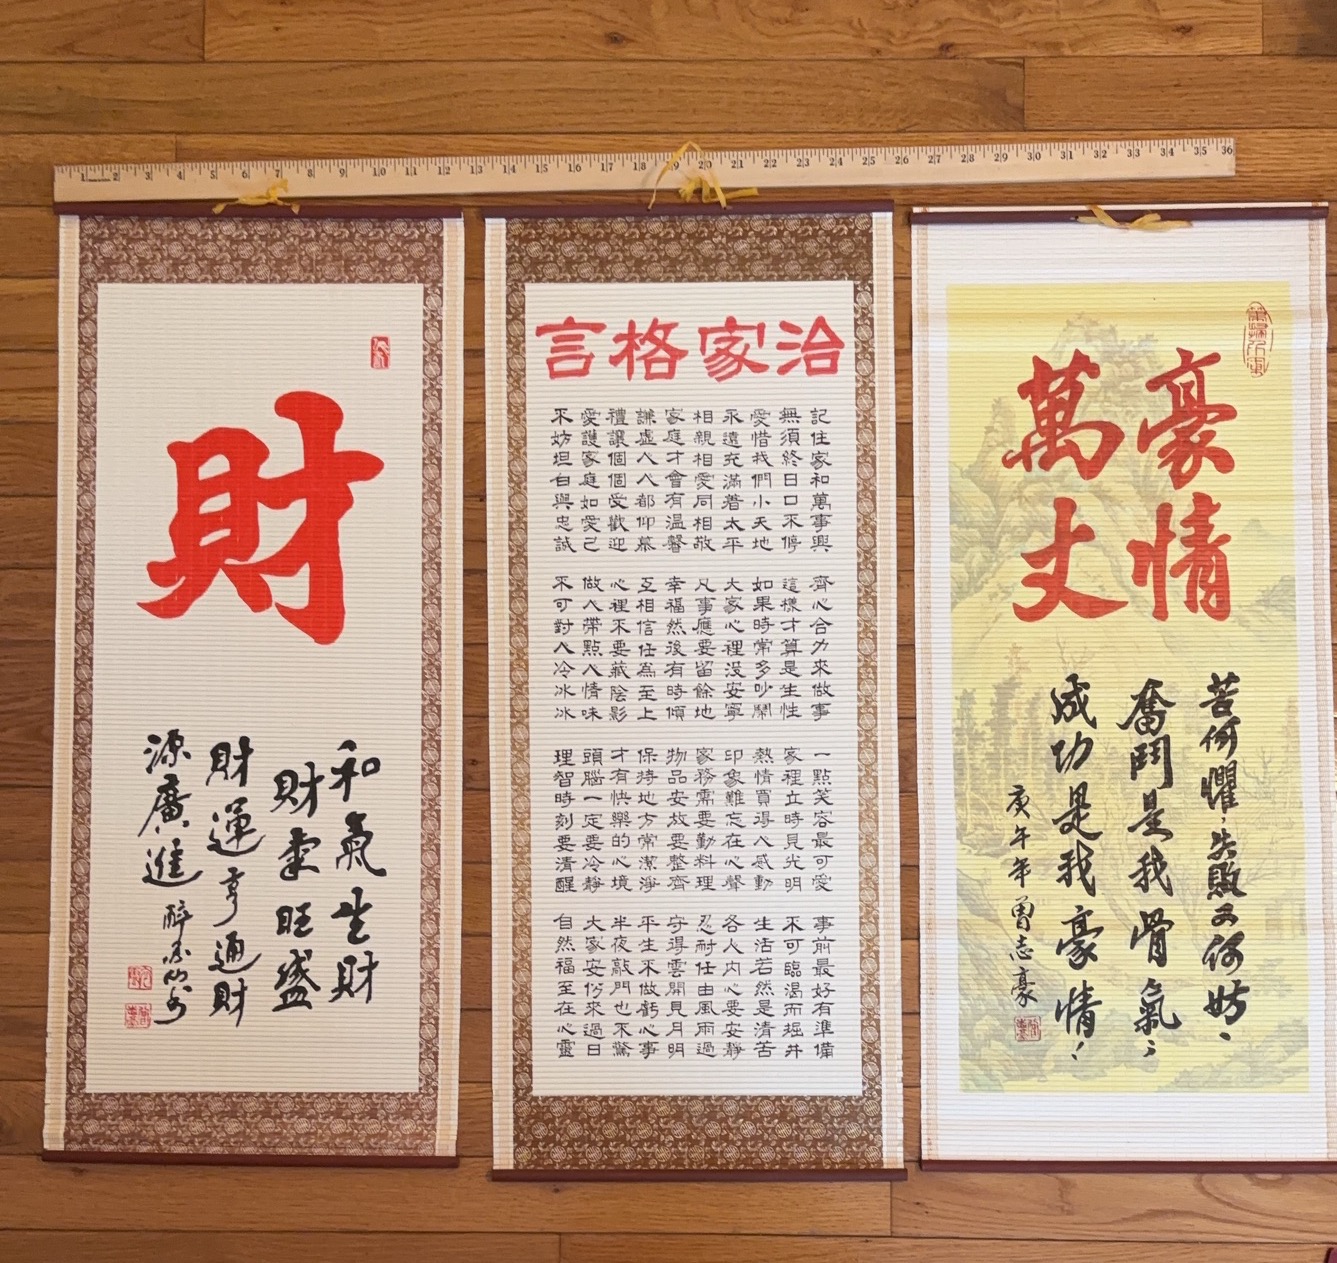 1 2 3 4 5 6 7 8 9 10 11 12 13 14 15 16 17 18 19 20 21 22 23 24 25 26 27 28 29 30 31 32 33 34 35 36
財
和氣生財
財 旺盛
財運亨通財
源廣進
治家格言
記住家和萬事興
無須終日口不停
愛惜我們小天地
永遠充滿着太平
相親相愛同相敬
家庭才會有溫馨
謙虛人人都仰慕
禮讓個個受歡迎
愛護家庭如愛己
不妨坦白與忠誠
齊心合力來做事
這樣才算是生性
如果時常多吵鬧
大家心裡沒安寧
凡事應要留餘地
幸福然後有時傾
互相信任為至上
心裡不要藏陰影
做人帶點人情味
不可對人冷冰冰
一點笑容最可愛
家裡立時見光明
熱情買得人感動
印象難忘在心聲
家務需要勤料理
物品安放要整齊
保持地方常潔淨
才有快樂的心境
頭腦一定要冷靜
理智時刻要清醒
事前最好有準備
不可臨渴而掘井
生活若然是清苦
各人內心要安靜
忍耐任由風雨過
守得雲開見月明
平生不做虧心事
半夜敲門也不驚
大家安份來過日
自然福至在心靈
豪情
萬丈
苦何懼,失敗又何妨、
奮鬥是我骨氣;
成功是我豪情!
庚午年曾志豪